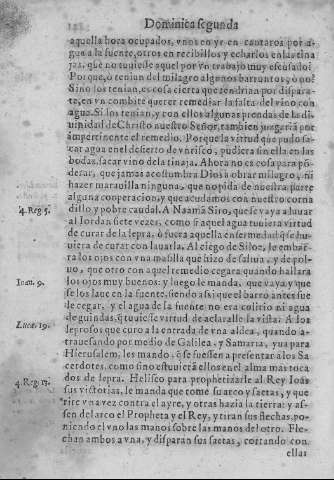 Dominica segunda
aquella hora ocupados, vnos en yr en cantaros por a-
gua a la fuente, otros en recibillos y echarlos en las tina
jas, que no tuuiesse aquel por vn trabajo muy escusado?
Porque, o tenian del milagro algunos barruntos, o no?
Si no los tenian, es cosa cierta que tendrian por dispara-
te, en vn combite querer remediar la falta del vino con
agua. Si los tenian, y con ellos algunas prendas de la di
uinidad de Christo nuestro Señor, tambien juzgaria por
impertinente el remedio. Porque la virtud que pudo sa-
car agua en el desierto de vn risco, pudiera sin ella en las
bodas, sacar vino de la tinaja. Ahora no es cosa para põ-
derar, que jamas acostumbra Dios a obrar milagro, ni
hazer marauilla ninguna, que no pida de nuestra parte
alguna cooperacion, y que acudamos con nuestro corna
dillo y pobre caudal. A Naamã Siro, que se vaya a lauar
al Iordan siete vezes, como si aquel agua tuuiera virtud
de curar de la lepra, o fuera aquella enfermedad q̃ se hu-
uiera de curar con lauarla. Al ciego de Siloe, le embar-
ra los ojos con vna massilla que hizo de saliua, y de pol-
uo, que otro con aquel remedio cegara quando hallara
los ojos muy buenos: y luego le manda, que vaya, y que
se los laue en la fuente, siendo assi que el barro antes fue
de cegar, y el agua de la fuente no era colirio ni agua
de guindas, q̃ tuuiesse virtud de aclaralle la vista. A los
leprosos que curo a la entrada de vna aldea, quando a-
trauessando por medio de Galilea, y Samaria, yua para
Hierusalem, les mando, q̃ se fuessen a presentar a los Sa
cerdotes, como sino estuuierã ellos en el alma mas toca
dos de lepra. Heliseo para prophetizarle al Rey Ioas
sus victorias, le manda que tome su arco y saetas, y que
tire vna vez contra el ayre, y otras hazia la tierra: y as-
sen del arco el Propheta y el Rey, y tirã sus flechas, po-
niendo el vno las manos sobre las manos del otro. Fle-
chan ambos a vna, y disparan sus saetas, cortando con
ellas
4. Reg. 5.
Ioan. 9.
Lucæ. 19.
4. Reg. 13.